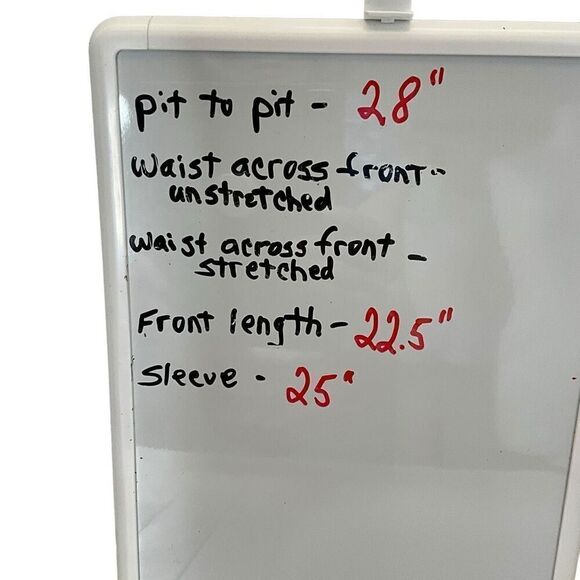 pit to pit - 28"
Waist across front -
unstretched
Waist across front -
stretched
Front length - 22.5"
Sleeve - 25"